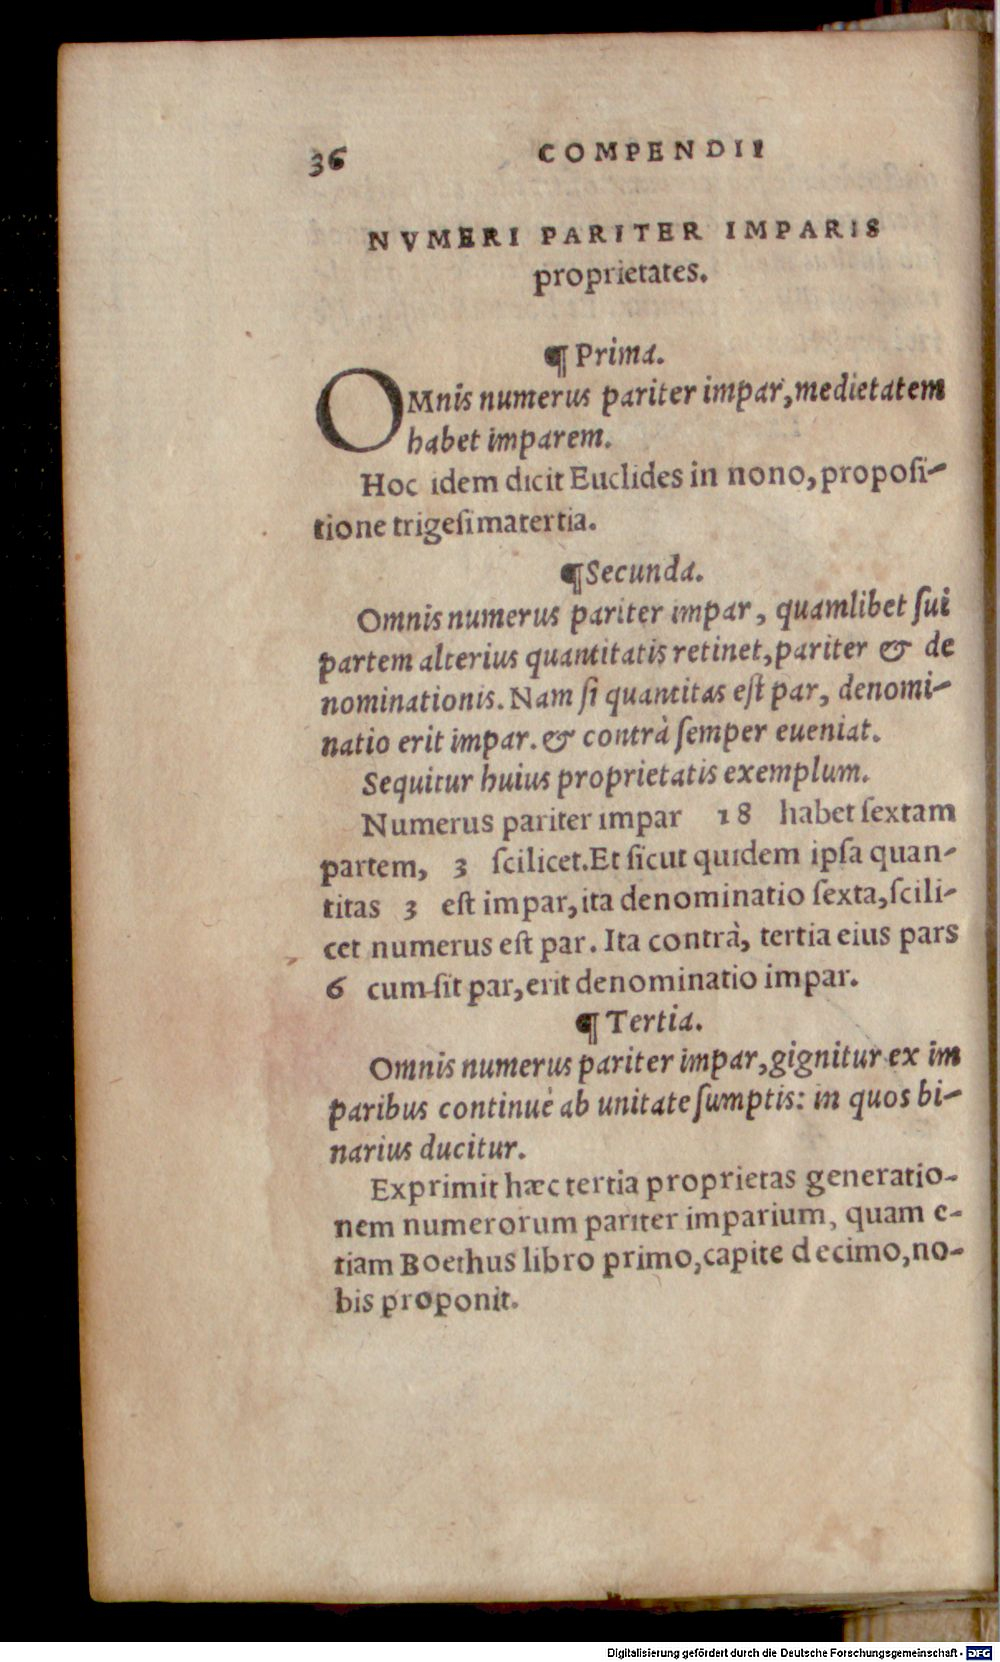 36 COMPENDII
NVMERI PARITER IMPARIS
proprietates.
¶ Prima.
OMnis numerus pariter impar, medietatem
habet imparem.
Hoc idem dicit Euclides in nono, proposi-
tione trigesimatertia.
¶ Secunda.
Omnis numerus pariter impar, quamlibet sui
partem alterius quantitatis retinet, pariter & de
nominationis. Nam si quantitas est par, denomi-
natio erit impar. & contrà semper eueniat.
Sequitur huius proprietatis exemplum.
Numerus pariter impar 18 habet sextam
partem, 3 scilicet. Et sicut quidem ipsa quan-
titas 3 est impar, ita denominatio sexta, scili-
cet numerus est par. Ita contrà, tertia eius pars
6 cum sit par, erit denominatio impar.
¶ Tertia.
Omnis numerus pariter impar, gignitur ex im
paribus continuè ab unitate sumptis: in quos bi-
narius ducitur.
Exprimit hæc tertia proprietas generatio-
nem numerorum pariter imparium, quam e-
tiam Boethus libro primo, capite decimo, no-
bis proponit.
Digitalisierung gefördert durch die Deutsche Forschungsgemeinschaft - DFG